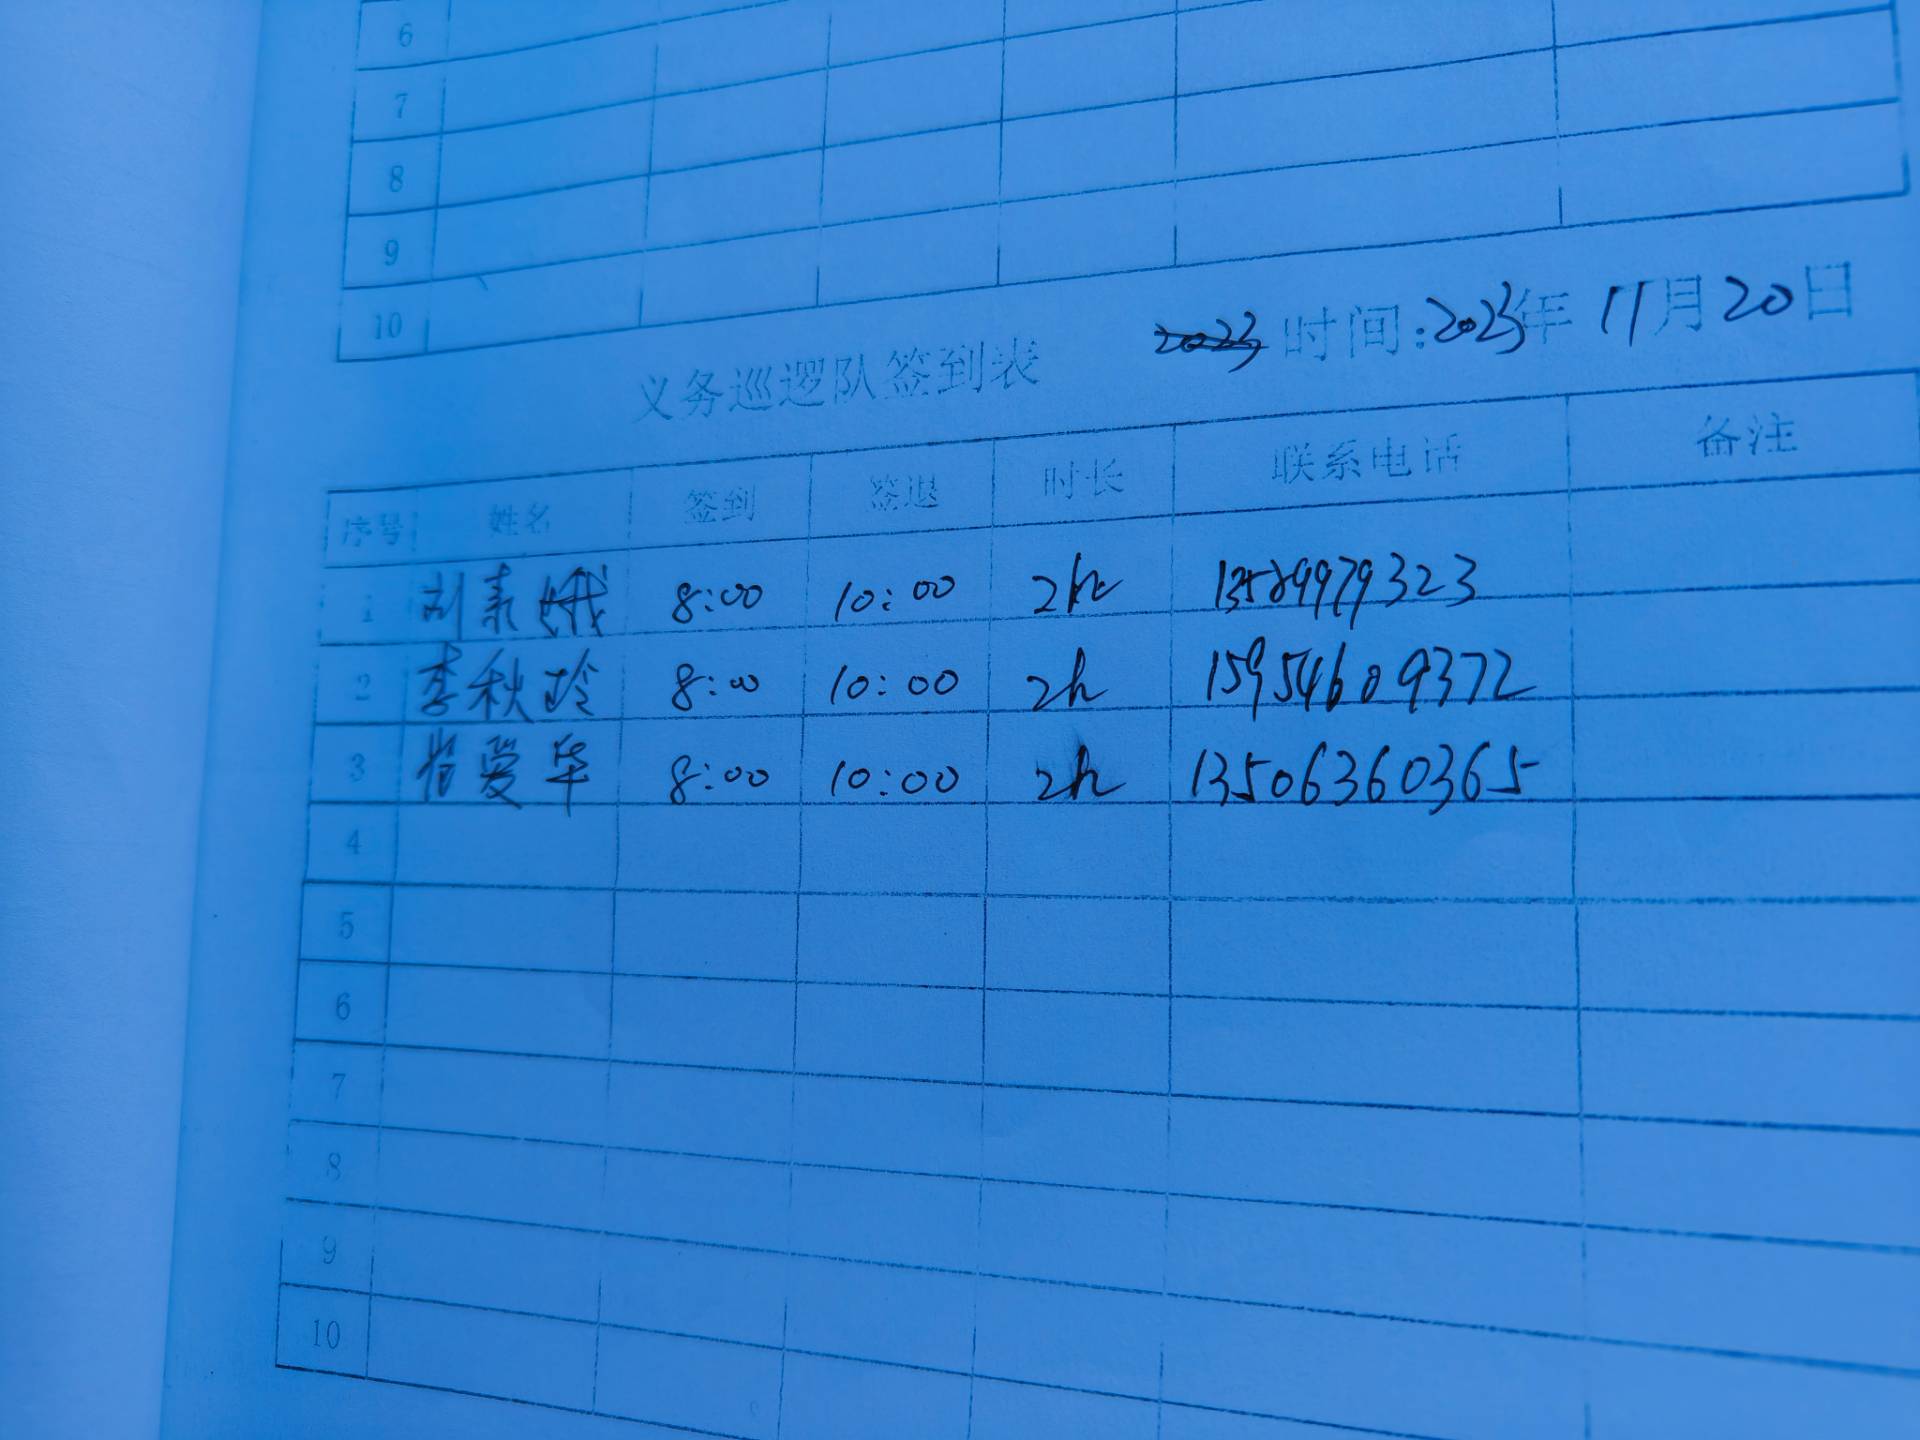 6
7
8
9
10
义务巡逻队签到表 时间:2023年 11月20日
序号 姓名 签到 签退 时长 联系电话 备注
1 刘素娥 8:00 10:00 2h 13589979323
2 李秋玲 8:00 10:00 2h 15954609372
3 崔爱华 8:00 10:00 2h 13506360365
4
5
6
7
8
9
10